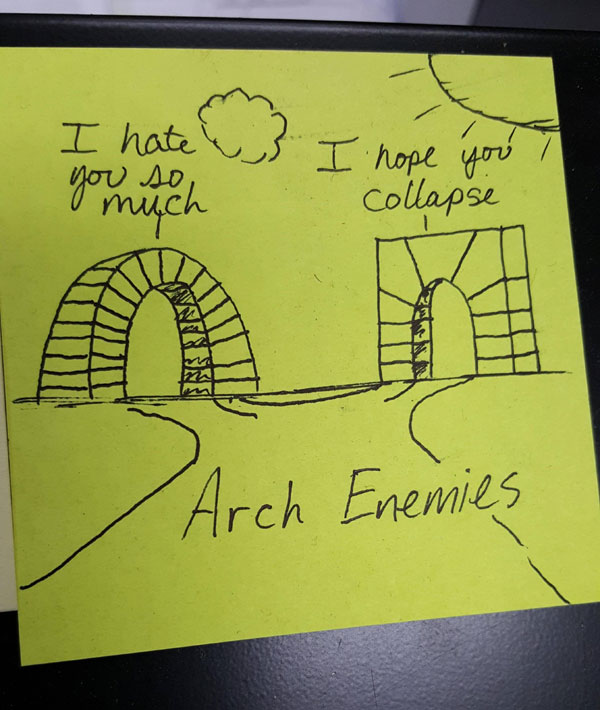 I hate
you so
much
I hope you
collapse
Arch Enemies